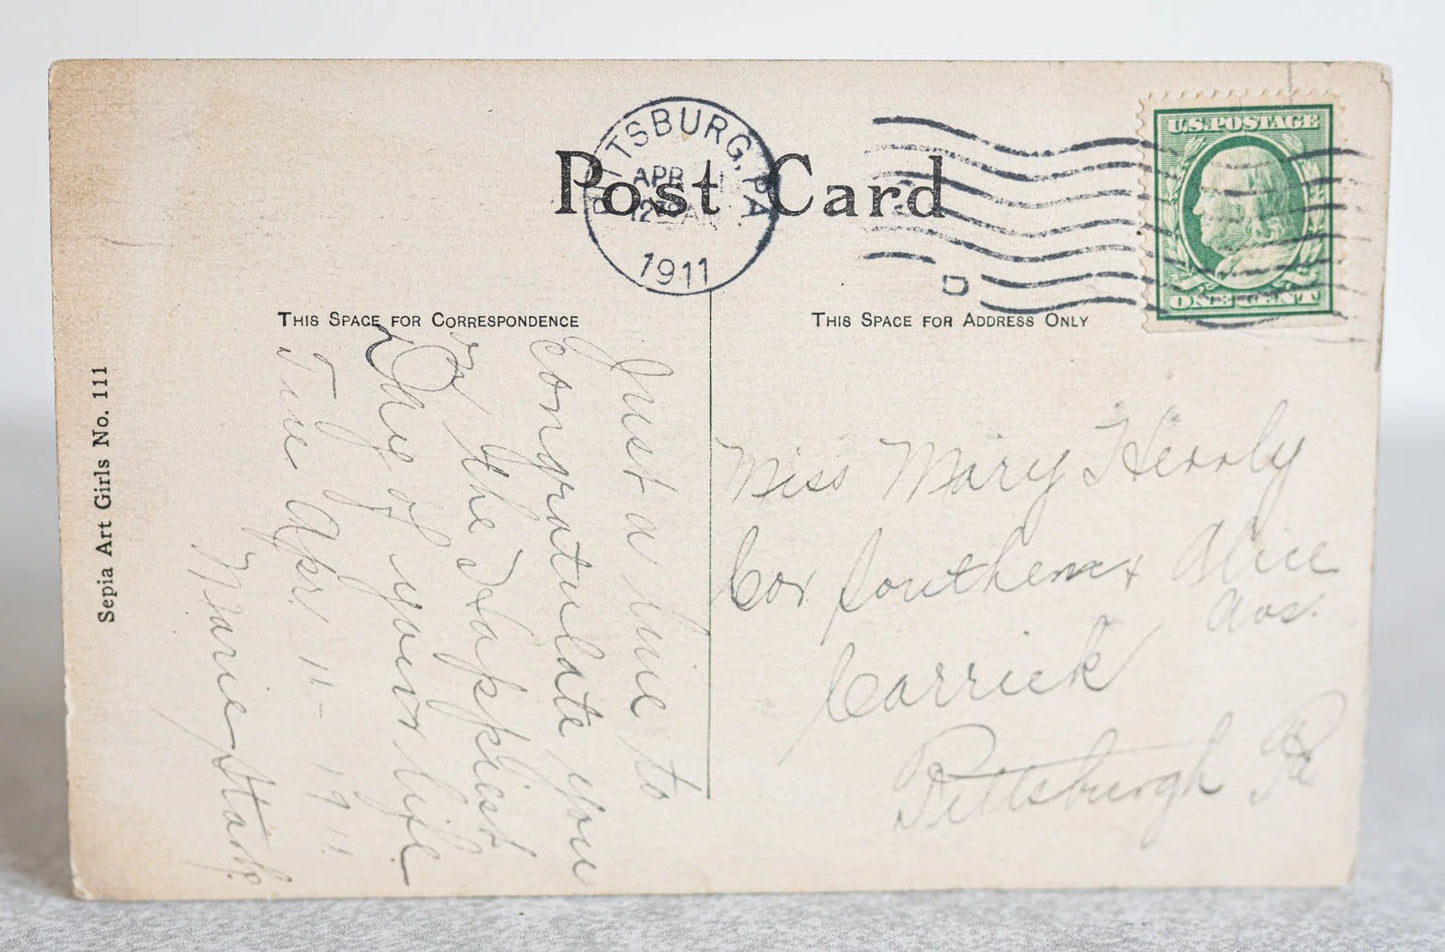 PITTSBURG, PA
APR 11
12
1911
D
Post Card
U.S. POSTAGE
ONE CENT
THIS SPACE FOR CORRESPONDENCE
THIS SPACE FOR ADDRESS ONLY
Sepia Art Girls No. 111
Just a line to
Congratulate you
on the Happiest
Day of your life.
Tue Apr. 11 - 1911
Marie Stark
Miss Mary
Cor. Southern + Alice
Ave.
Carrick
Pittsburgh Pa